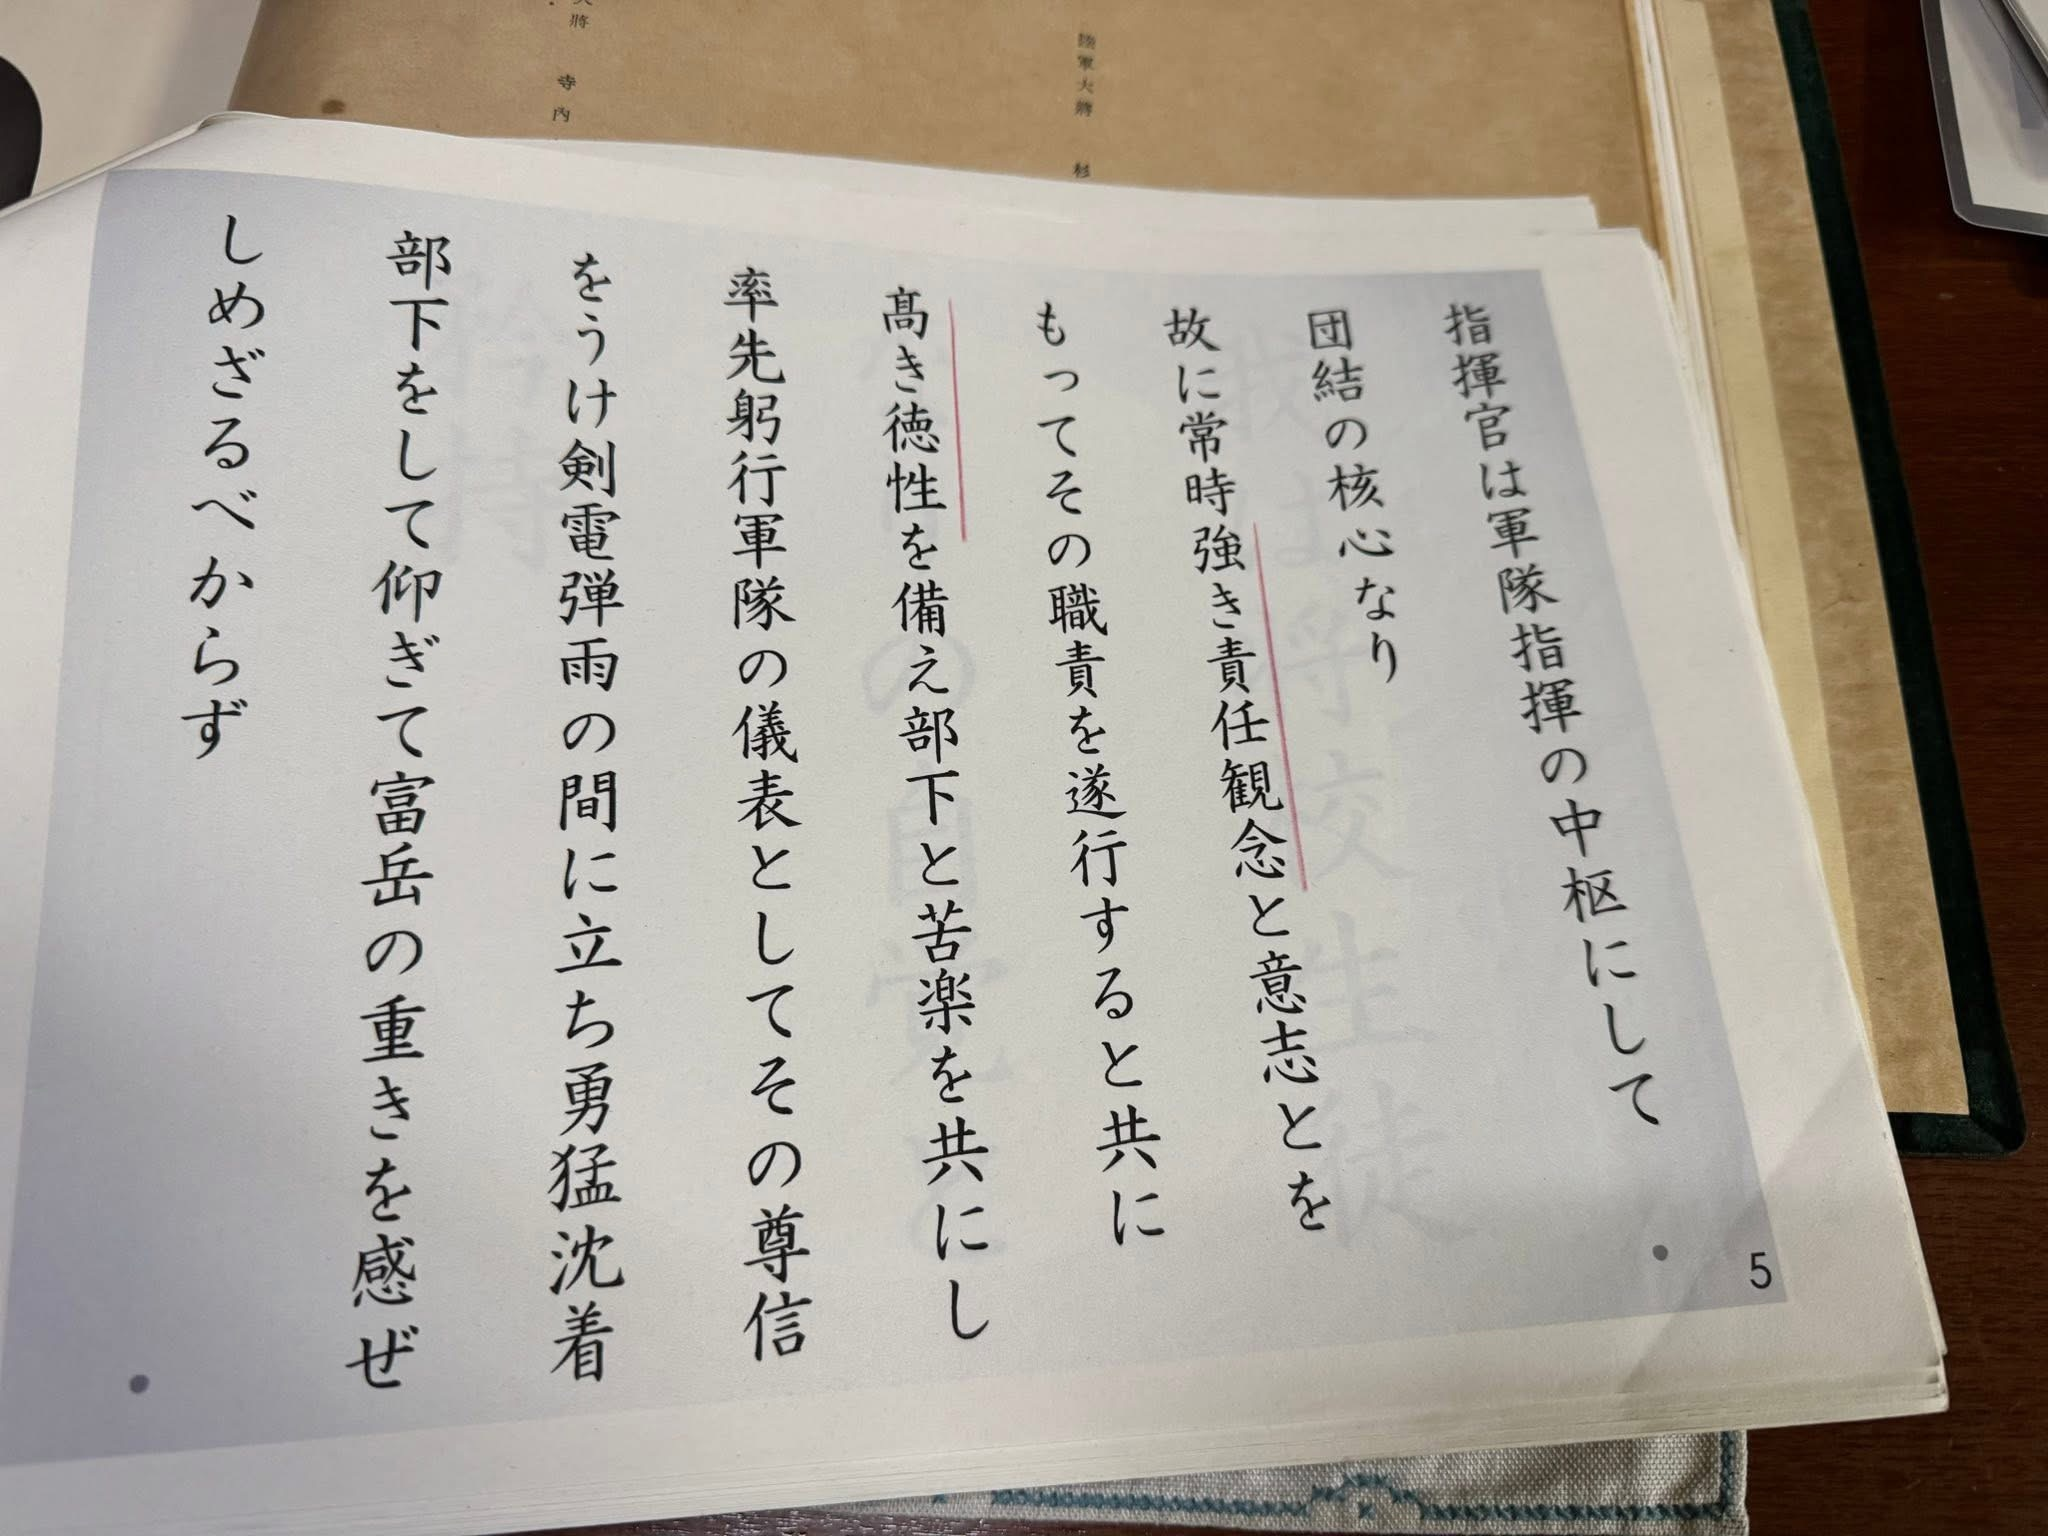 指揮官は軍隊指揮の中枢にして
団結の核心なり
故に常時強き責任観念と意志とを
もってその職責を遂行すると共に
髙き徳性を備え部下と苦楽を共にし
率先躬行軍隊の儀表としてその尊信
をうけ剣電弾雨の間に立ち勇猛沈着
部下をして仰ぎて富岳の重きを感ぜ
しめざるべからず
5
陸軍大將 杉
大將 寺內